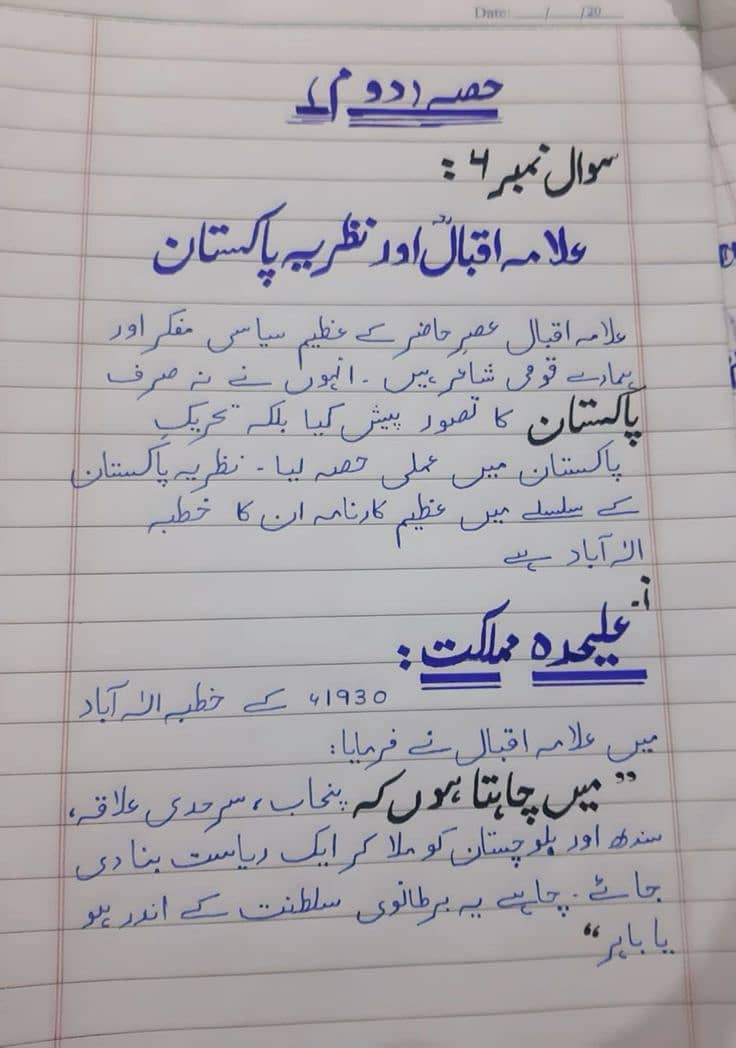 Date: ___/___/20___
حصہ (دوم)
سوال نمبر ۶ :
علامہ اقبالؒ اور نظریہ پاکستان
علامہ اقبال عصرِ حاضر کے عظیم سیاسی مفکر اور
ہمارے قومی شاعر ہیں ۔ انہوں نے نہ صرف
پاکستان کا تصور پیش کیا بلکہ تحریکِ
پاکستان میں عملی حصہ لیا ۔ نظریہ پاکستان
کے سلسلے میں عظیم کارنامہ ان کا خطبہ
الہ آباد ہے
علیحدہ مملکت :
1930ء کے خطبہ الہ آباد
میں علامہ اقبال نے فرمایا :
” میں چاہتا ہوں کہ پنجاب ، سرحدی علاقہ ،
سندھ اور بلوچستان کو ملا کر ایک ریاست بنا دی
جائے ۔ چاہے یہ برطانوی سلطنت کے اندر ہو
یا باہر “